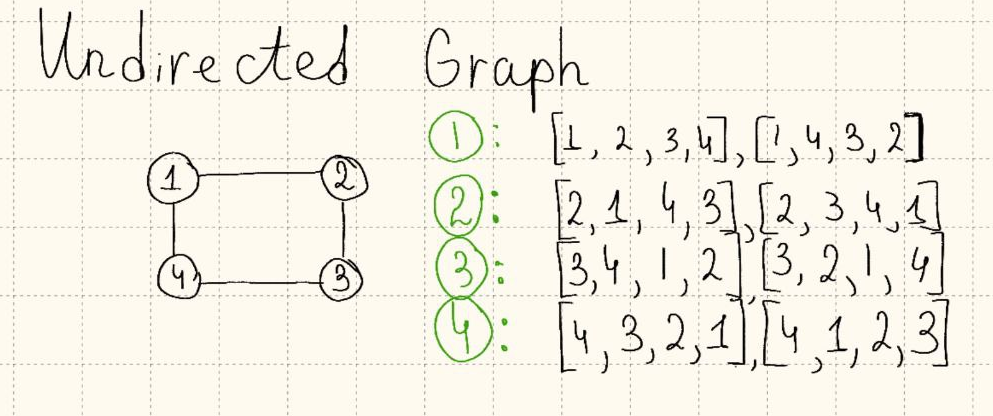 Undirected Graph
1 2
4 3
1: [1, 2, 3, 4], [1, 4, 3, 2]
2: [2, 1, 4, 3], [2, 3, 4, 1]
3: [3, 4, 1, 2], [3, 2, 1, 4]
4: [4, 3, 2, 1], [4, 1, 2, 3]